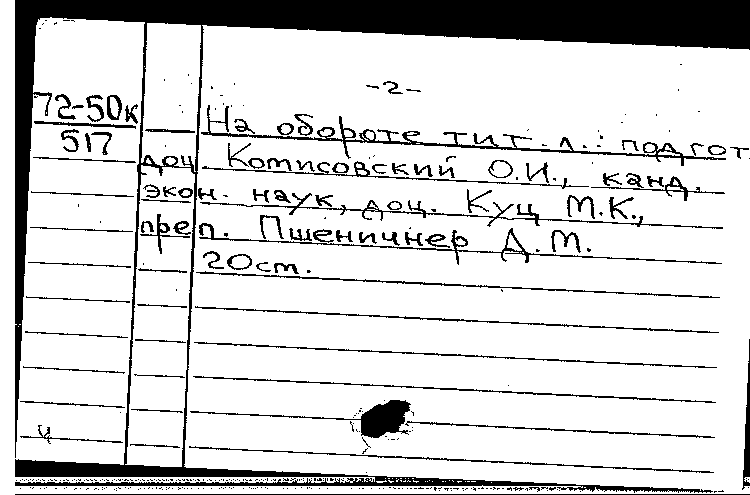 -2-
72-50к
517
На обороте тит. л.: подгот
доц. Комисовский О.И., канд.
экон. наук, доц. Кущ М.К.,
преп. Пшеничнер Д.М.
20ст.
ч